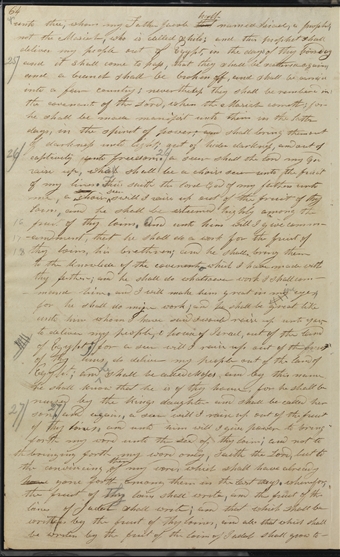 64
unto thee, whom my Father Jacob named Israel; a prophet,
not the Messiah, who is called Shilo; and this prophet shall
deliver my people out of Egypt, in the days of thy bondage
25 and it shall come to pass, that they shall be scattered again
and a branch shall be broken off, and shall be carried
into a far country; nevertheless they shall be remembered in
the covenants of the Lord, when the Messiah cometh; for
he shall be made manifest unto them in the latter
days, in the spirit of power; and shall bring them out
of darkness unto light; out of hidden darkness, and out of
26 captivity unto freedom; a seer shall the Lord my God
raise up, shall be a choice seer unto the fruit
of my loins; Thus saith the Lord God of my fathers unto
me, a choice seer will I raise up out of the fruit of thy
loins, and he shall be esteemed highly among the
fruit of thy loins, And unto him will I give comm-
andment, that he shall do a work for the fruit of
thy loins, his brethren; and he shall bring them
to the knowledge of the covenants which I have made with
thy fathers; and he shall do whatsoever work I shall com-
mand him, and I will make him great in mine eyes
for he shall do my work; and he shall be great like
unto him whom I have said I would raise up unto you
to deliver my people, O house of Israel, out of the land
of Egypt; for a seer will I raise up out of the fruit
of thy loins, to deliver my people out of the land of
Egypt; and he shall be called Moses, and by this name
he shall know that he is of thy house; for he shall be
nursed by the kings daughter and shall be called her
27 son; And again, a seer will I raise up out of the fruit
of thy loins, and unto him will I give power to bring
forth my word unto the seed of thy loins; and not to
the bringing forth my word only, Saith the Lord, but to
the convincing of my word which shall have already
gone forth among them in the last days; wherefore,
the fruit of thy loins shall write, and the fruit of the
loins of Judah shall write; and that which shall be
written by the fruit of thy loins, and also that which shall
be written by the fruit of the loins of Judah shall grow to-